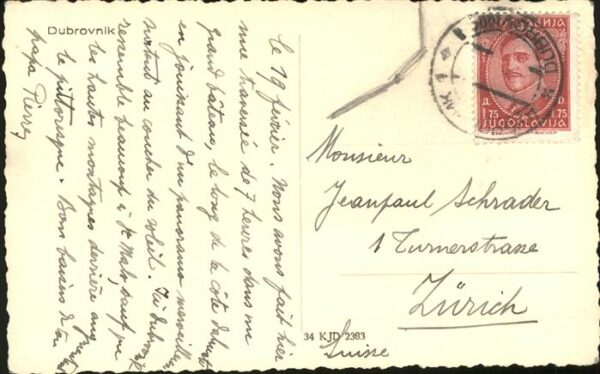 Dubrovnik
le 19 février. Nous avons fait hier
une traversée de 7 heures dans un
grand bâteau, le long de la côte
en jouissant d'un panorama merveilleux
surtout au coucher du soleil. Ici
ressemble beaucoup à St Malo, sauf
les hautes montagnes derrière
le pittoresque. Bons baisers de ton
papa Pierre
JUGOSLAVIJA
1.75
Monsieur
Jeanpaul Schrader
1 Turnerstrasse
Zürich
Suisse
34 KJD 2383